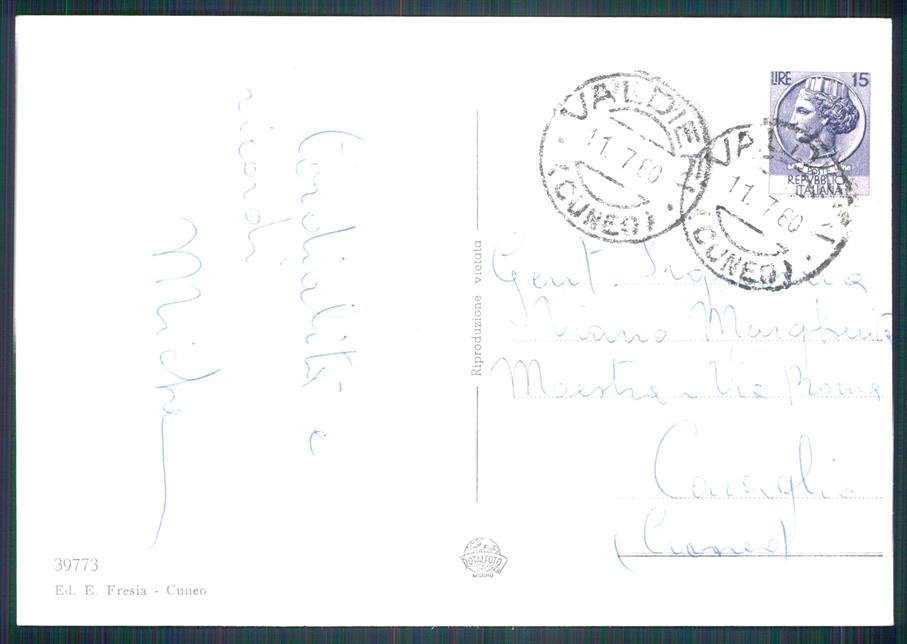 Cordialità e
ricordi
Riproduzione vietata
39773
Ed. E. Fresia - Cuneo
ROTALFOTO
MILANO
VALDIERI
11.7.60
(CUNEO)
VALDIERI
11.7.60
(CUNEO)
LIRE 15
POSTE
REPVBBLICA
ITALIANA
Gent. Signorina
Viano Margherita
Maestra - Via Roma
(Cuneo)